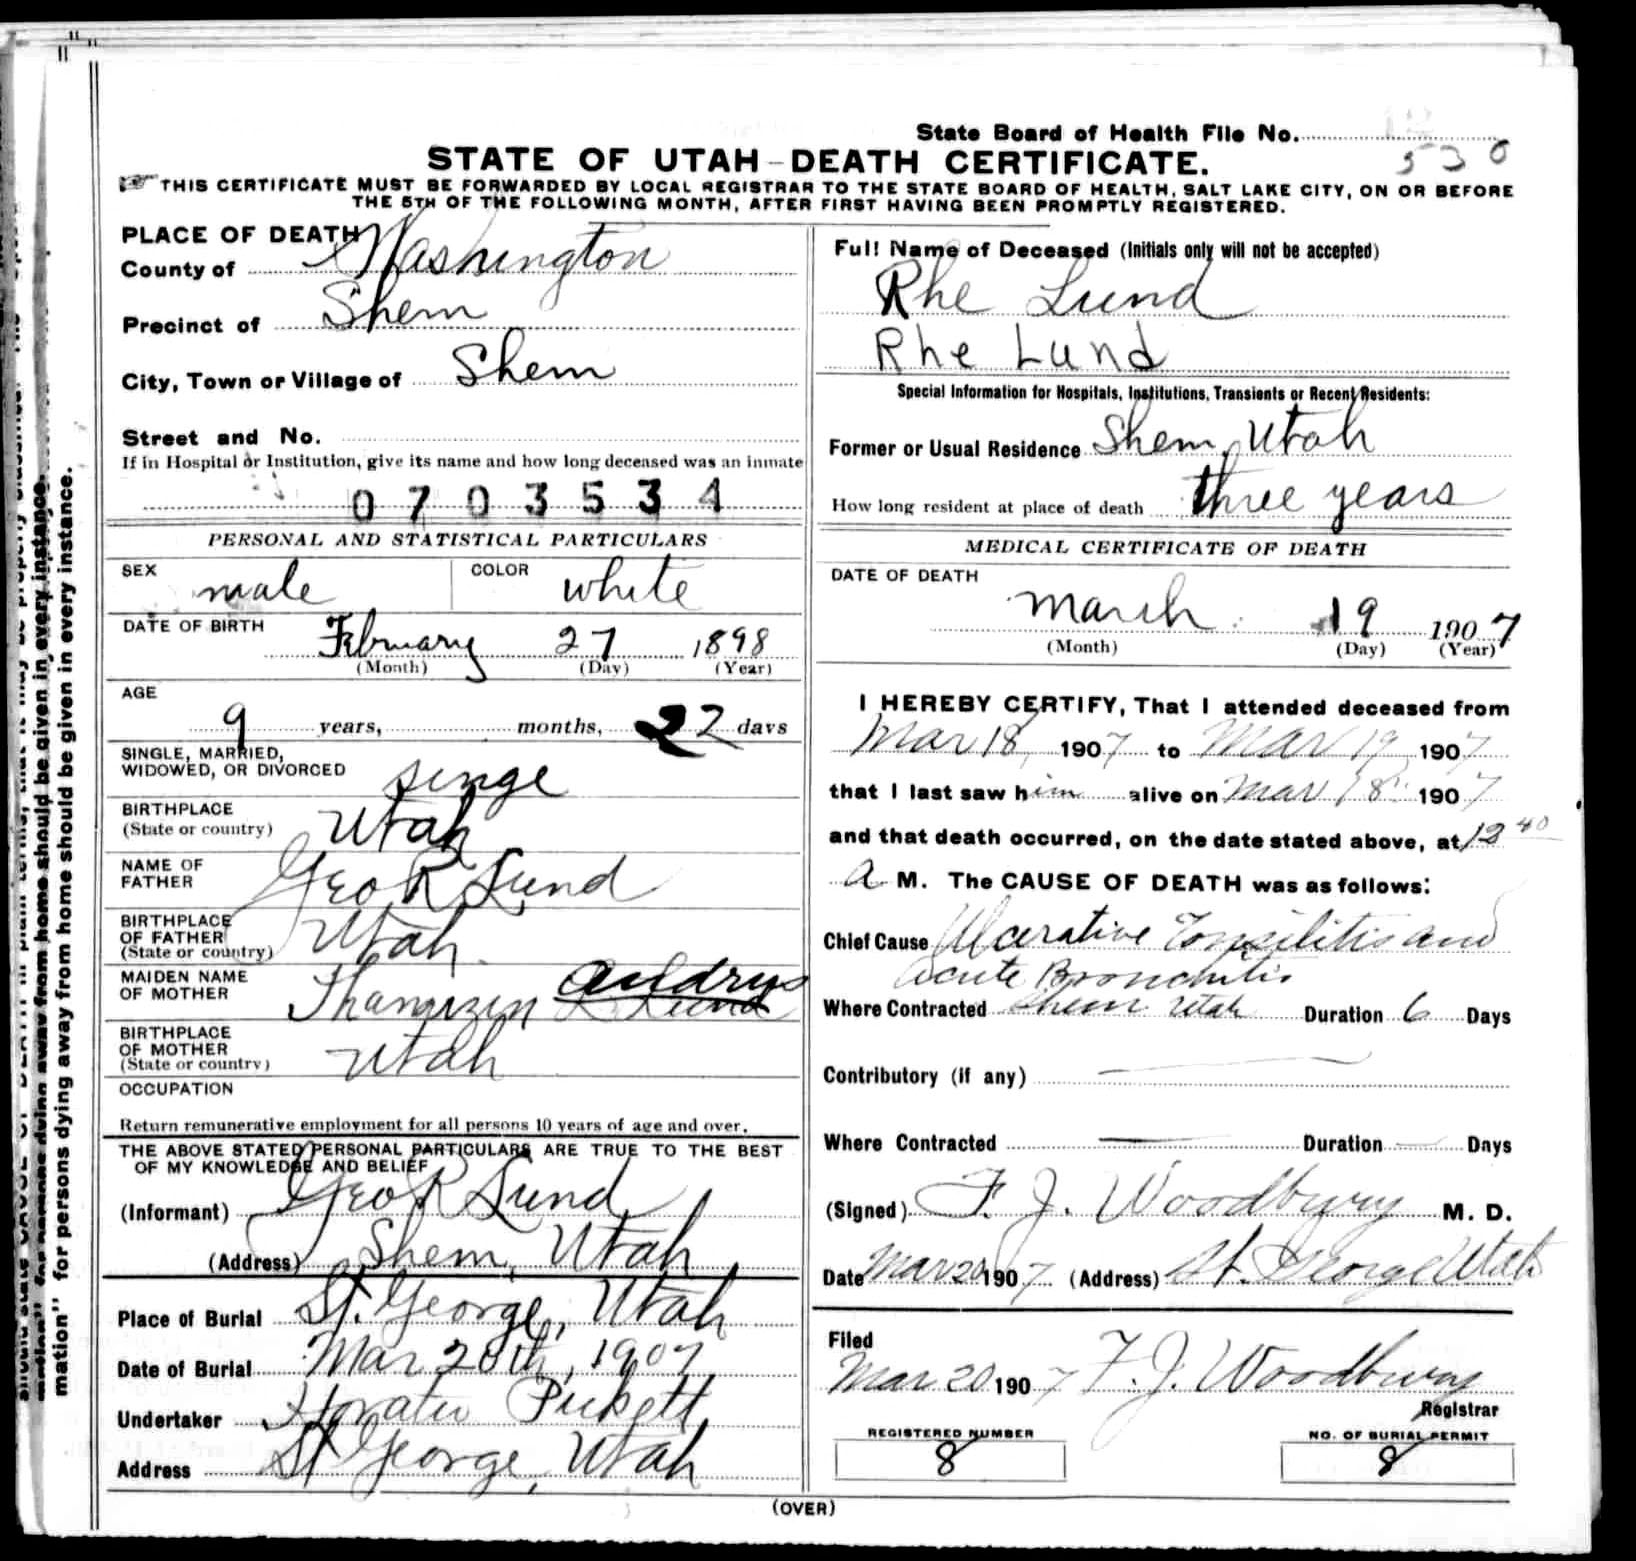 State Board of Health File No.
530
STATE OF UTAH—DEATH CERTIFICATE.
THIS CERTIFICATE MUST BE FORWARDED BY LOCAL REGISTRAR TO THE STATE BOARD OF HEALTH, SALT LAKE CITY, ON OR BEFORE
THE 5TH OF THE FOLLOWING MONTH, AFTER FIRST HAVING BEEN PROMPTLY REGISTERED.
PLACE OF DEATH
County of Washington
Precinct of Shem
City, Town or Village of Shem
Street and No.
If in Hospital or Institution, give its name and how long deceased was an inmate
0703534
PERSONAL AND STATISTICAL PARTICULARS
SEX male COLOR white
DATE OF BIRTH February 27 1898
(Month) (Day) (Year)
AGE
9 years, months, 22 days
SINGLE, MARRIED,
WIDOWED, OR DIVORCED singe
BIRTHPLACE
(State or country) Utah
NAME OF
FATHER Geo R Lund
BIRTHPLACE
OF FATHER
(State or country) Utah
MAIDEN NAME
OF MOTHER Thomazin Andrus
BIRTHPLACE
OF MOTHER
(State or country) Utah
OCCUPATION
Return remunerative employment for all persons 10 years of age and over.
THE ABOVE STATED PERSONAL PARTICULARS ARE TRUE TO THE BEST
OF MY KNOWLEDGE AND BELIEF
(Informant) Geo R Lund
(Address) Shem, Utah
Place of Burial St. George, Utah
Date of Burial Mar 20th, 1907
Undertaker Horatio Pickett
Address St George, Utah
Full Name of Deceased (Initials only will not be accepted)
Rhe Lund
Rhe Lund
Special Information for Hospitals, Institutions, Transients or Recent Residents:
Former or Usual Residence Shem, Utah
How long resident at place of death three years
MEDICAL CERTIFICATE OF DEATH
DATE OF DEATH
March 19 1907
(Month) (Day) (Year)
I HEREBY CERTIFY, That I attended deceased from
Mar 18 1907 to Mar 19 1907
that I last saw him alive on Mar 18 1907
and that death occurred, on the date stated above, at 12 40
a M. The CAUSE OF DEATH was as follows:
Chief Cause Ulcerative Tonsilitis and
acute Bronchitis
Where Contracted Shem Utah Duration 6 Days
Contributory (if any)
Where Contracted Duration Days
(Signed) F. J. Woodbury M. D.
Date Mar 20 1907 (Address) St. George Utah
Filed
Mar 20 1907 F. J. Woodbury
Registrar
REGISTERED NUMBER
8
NO. OF BURIAL PERMIT
8
(OVER)
mation" for persons dying away from home should be given in every instance.